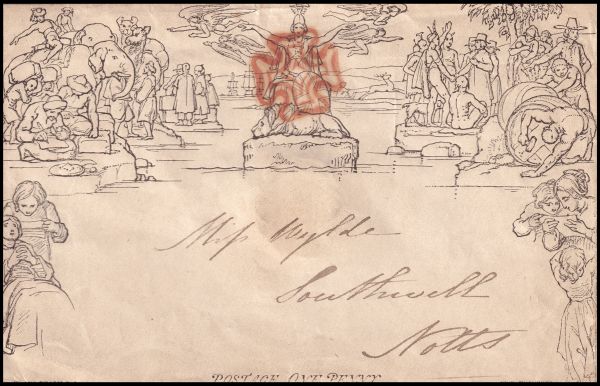 Miſs Wylde
Southwell
Notts
POSTAGE ONE PENNY